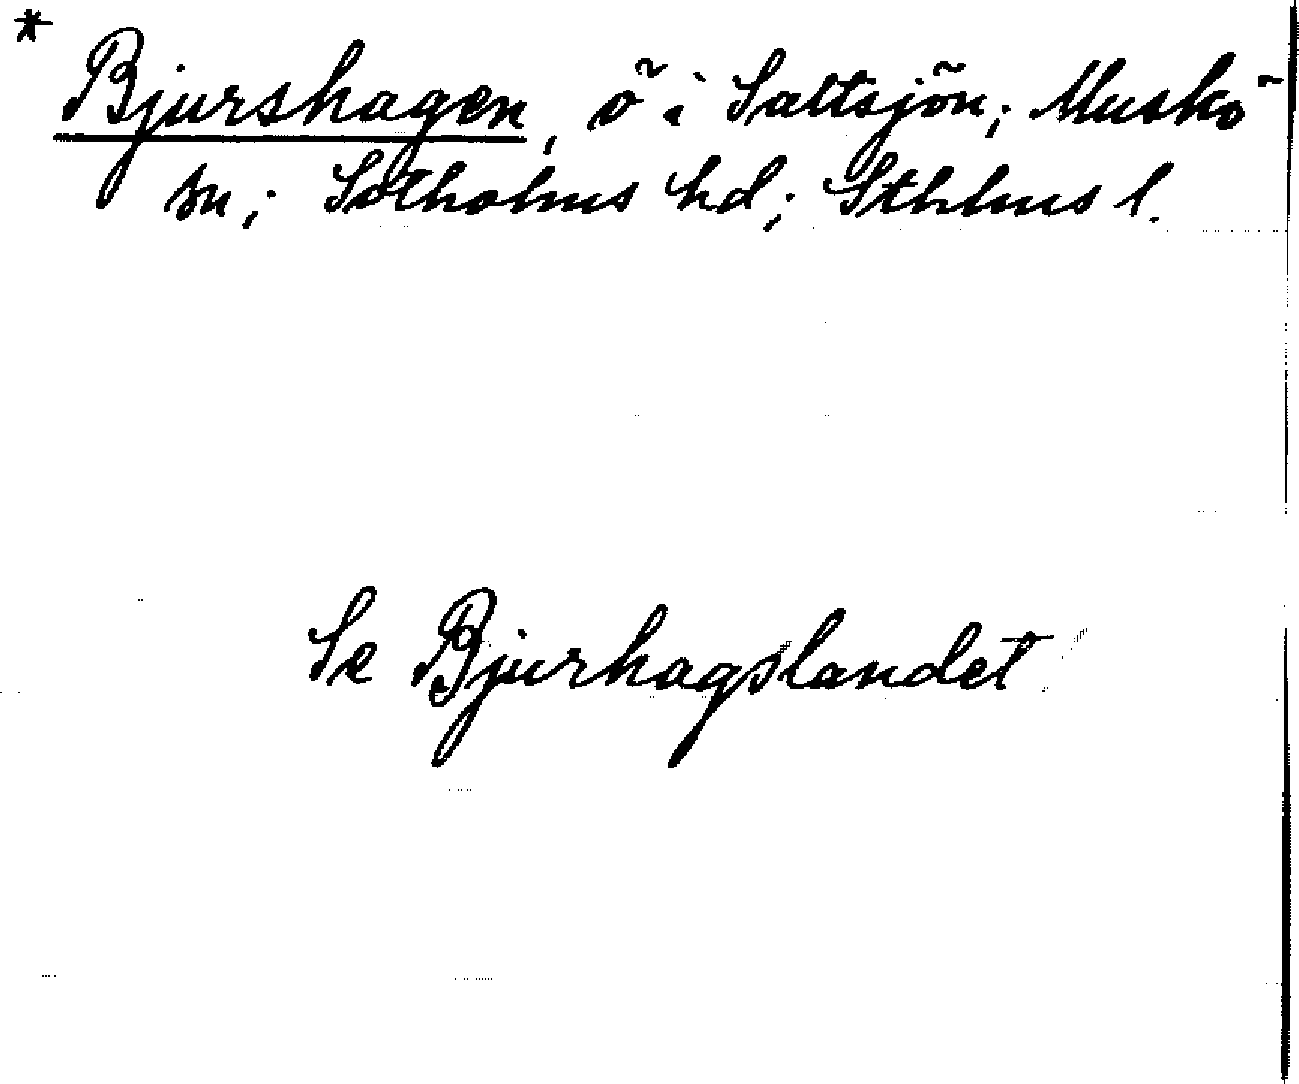 * Bjurshagen, ö i Saltsjön; Muskö
sn; Sotholms hd; Sthlms l.
Se Bjurhagslandet